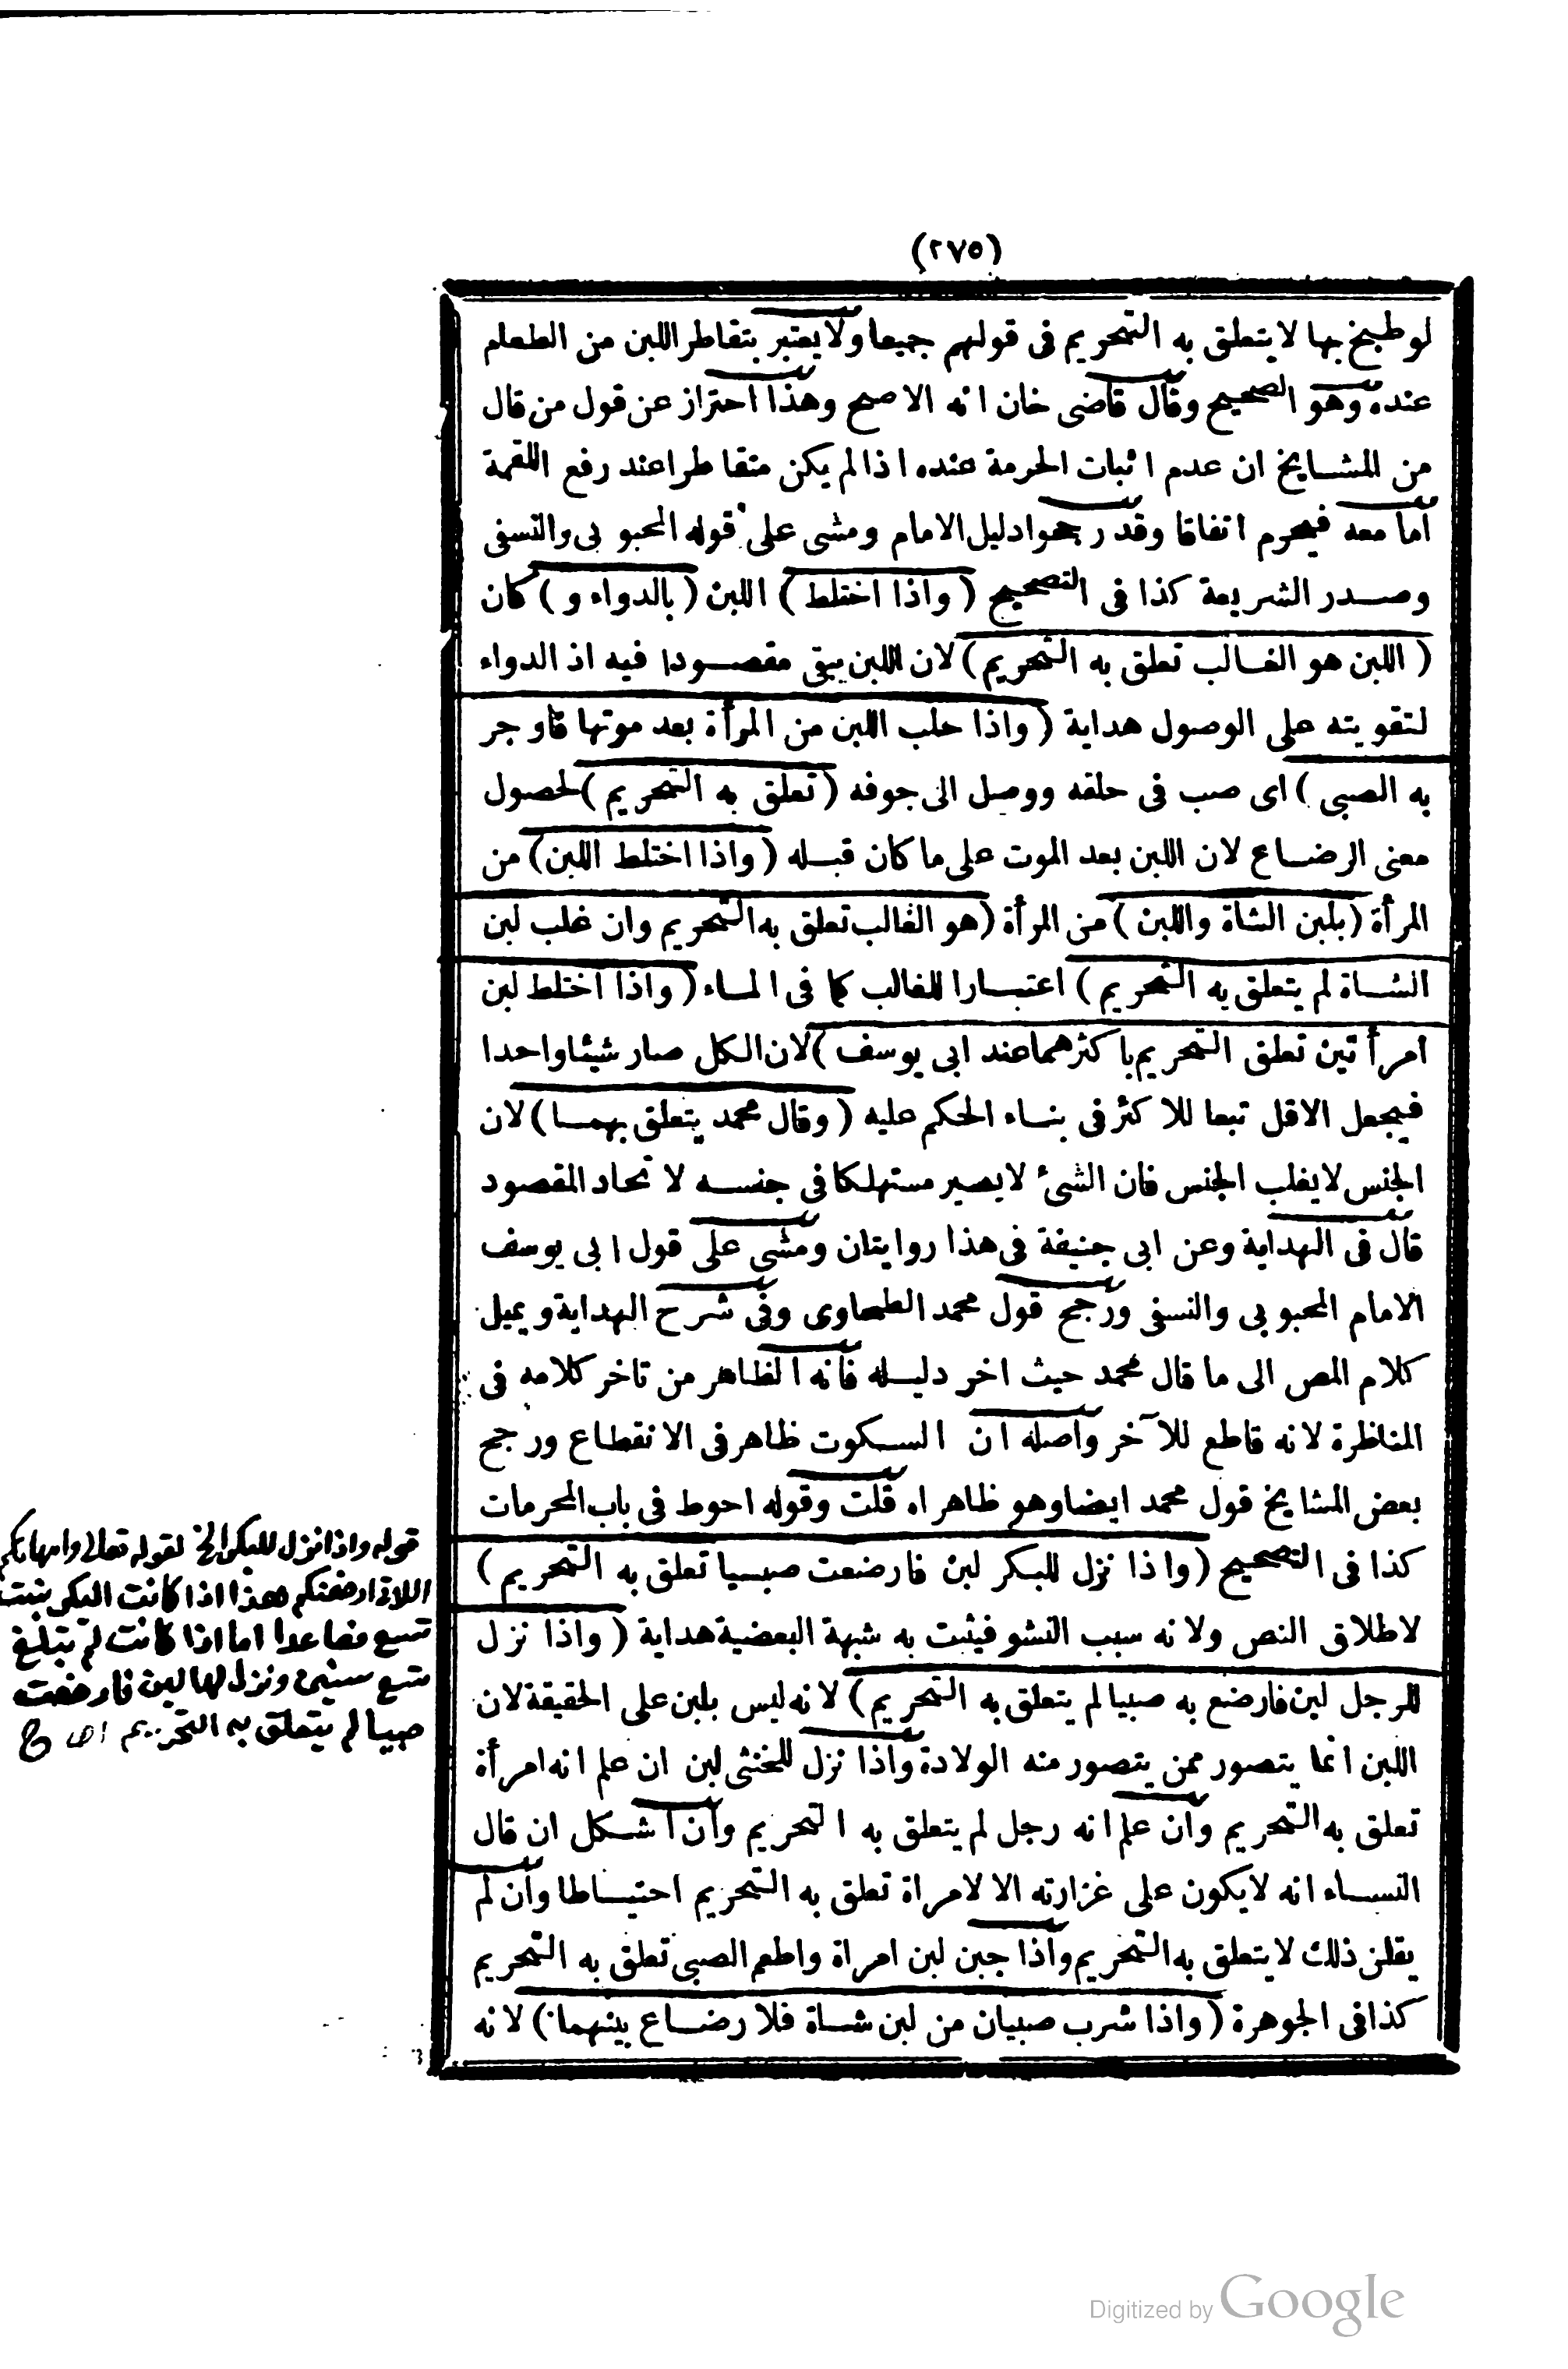 (٢٧٥)
لو طبخ بها لا يتعلق به التحريم فى قولهم جميعا ولا يعتبر بتقاطر اللبن من الطعام
عنده وهو الصحيح وقال قاضى خان انه الاصح وهذا احتراز عن قول من قال
من المشايخ ان عدم اثبات الحرمة عنده اذا لم يكن متقاطرا عند رفع اللقمة
اما معه فيحرم اتفاقا وقد رجحوا دليل الامام ومشى على قوله المحبوبى والنسفى
وصدر الشريعة كذا فى التصحيح (واذا اختلط) اللبن (بالدواء و) كان
(اللبن هو الغالب تعلق به التحريم) لان اللبن يبقى مقصودا فيه اذ الدواء
لتقويته على الوصول هداية (واذا حلب اللبن من المرأة بعد موتها فاوجر
به الصبى) اى صب فى حلقه ووصل الى جوفه (تعلق به التحريم) لحصول
معنى الرضاع لان اللبن بعد الموت على ما كان قبله (واذا اختلط اللبن) من
المرأة (بلبن الشاة واللبن) من المرأة (هو الغالب تعلق به التحريم وان غلب لبن
الشاة لم يتعلق به التحريم) اعتبارا للغالب كما فى الماء (واذا اختلط لبن
امرأتين تعلق التحريم باكثرهما عند ابى يوسف) لان الكل صار شيئا واحدا
فيجعل الاقل تبعا للاكثر فى بناء الحكم عليه (وقال محمد يتعلق بهما) لان
الجنس لا يغلب الجنس فان الشئ لا يصير مستهلكا فى جنسه لاتحاد المقصود
قال فى الهداية وعن ابى حنيفة فى هذا روايتان ومشى على قول ابى يوسف
الامام المحبوبى والنسفى ورجح قول محمد الطحاوى وفى شرح الهداية ويميل
كلام المص الى ما قال محمد حيث اخر دليله فانه الظاهر من تاخر كلامه فى
المناظرة لانه قاطع للآخر واصله ان السكوت ظاهر فى الانقطاع ورجح
بعض المشايخ قول محمد ايضا وهو ظاهر اه قلت وقوله احوط فى باب المحرمات
كذا فى التصحيح (واذا نزل للبكر لبن فارضعت صبيا تعلق به التحريم)
لاطلاق النص ولانه سبب النشو فيثبت به شبهة البعضية هداية (واذا نزل
للرجل لبن فارضع به صبيا لم يتعلق به التحريم) لانه ليس بلبن على الحقيقة لان
اللبن انما يتصور ممن يتصور منه الولادة واذا نزل للخنثى لبن ان علم انه امرأة
تعلق به التحريم وان علم انه رجل لم يتعلق به التحريم وان اشكل ان قال
النساء انه لا يكون على غزارته الا لامراة تعلق به التحريم احتياطا وان لم
يقلن ذلك لا يتعلق به التحريم واذا جبن لبن امراة واطعم الصبى تعلق به التحريم
كذا فى الجوهرة (واذا شرب صبيان من لبن شاة فلا رضاع بينهما) لانه
قوله واذا نزل للبكر الخ لقوله تعالى وامهاتكم
اللاتى ارضعنكم هذا اذا كانت البكر بنت
تسع فصاعدا اما اذا كانت لم تبلغ
تسع سنين ونزل لها لبن فارضعت
صبيا لم يتعلق به التحريم اه ج
Digitized by Google